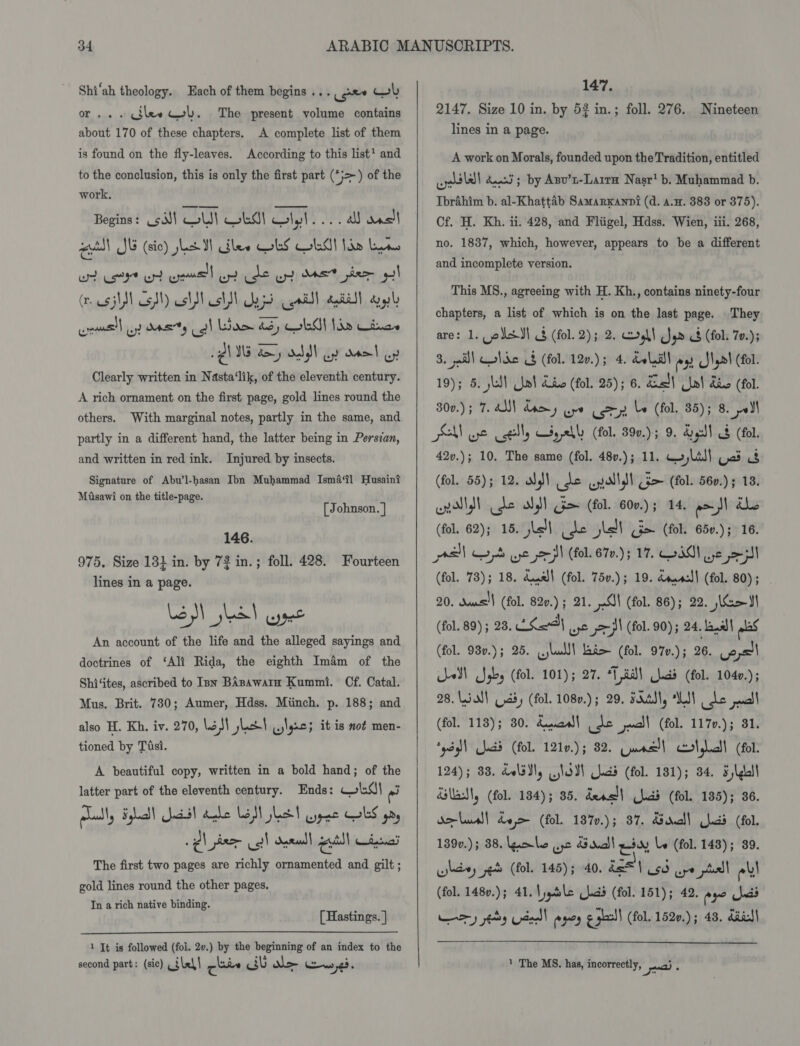 34
ARABIC MANUSCRIPTS.
Shi‘ah theology. Each of them begins ... باب معنى
or ... باب معانى. The present volume contains
about 170 of these chapters. A complete list of them
is found on the fly-leaves. According to this list¹ and
to the conclusion, this is only the first part (جزء) of the
work.
Begins: الحمد لله .... ابواب الكتاب الباب الذى
سمينا هذا الكتاب كتاب معانى الاخبار (sic) قال الشيخ
ابو جعفر محمد بن على بن الحسين بن موسى بن
بابويه الفقيه القمى نزيل الراى الراى (الرىّ الرازى r.)
مصنف هذا الكتاب رضّه حدثنا ابى ومحمد بن الحسين
بن احمد بن الوليد رحمة قالا الخ.
Clearly written in Nasta‘lik, of the eleventh century.
A rich ornament on the first page, gold lines round the
others. With marginal notes, partly in the same, and
partly in a different hand, the latter being in Persian,
and written in red ink. Injured by insects.
Signature of Abu’l-hasan Ibn Muhammad Ismâ‘îl Husainî
Mûsawî on the title-page.
[Johnson.]
146.
975. Size 13¼ in. by 7¾ in.; foll. 428. Fourteen
lines in a page.
عيون اخبار الرضا
An account of the life and the alleged sayings and
doctrines of ‘Alî Rida, the eighth Imâm of the
Shi‘ites, ascribed to Ibn Bâbawaih Kummî. Cf. Catal.
Mus. Brit. 730; Aumer, Hdss. Münch. p. 188; and
also H. Kh. iv. 270, عنوان اخبار الرضا; it is not men-
tioned by Tûsî.
A beautiful copy, written in a bold hand; of the
latter part of the eleventh century. Ends: تم الكتاب
وهو كتاب عيون اخبار الرضا عليه افضل الصلوة والسلّم
تصنيف الشيخ السعيد ابى جعفر الخ.
The first two pages are richly ornamented and gilt;
gold lines round the other pages.
In a rich native binding.
[Hastings.]
¹ It is followed (fol. 2v.) by the beginning of an index to the
second part: (sic) فهرست جلد ثانى مفتاح المعانى.
147.
2147. Size 10 in. by 5¾ in.; foll. 276. Nineteen
lines in a page.
A work on Morals, founded upon the Tradition, entitled
تنبيه الغافلين; by Abu’l-Laith Nasr¹ b. Muhammad b.
Ibrâhîm b. al-Khattâb Samarkandî (d. a.h. 383 or 375).
Cf. H. Kh. ii. 428, and Flügel, Hdss. Wien, iii. 268,
no. 1837, which, however, appears to be a different
and incomplete version.
This MS., agreeing with H. Kh., contains ninety-four
chapters, a list of which is on the last page. They
are: 1. فى الاخلاص (fol. 2); 2. فى هول الموت (fol. 7v.);
3. فى عذاب القبر (fol. 12v.); 4. اهوال يوم القيامة (fol.
19); 5. صفة اهل النار (fol. 25); 6. صفة اهل الجنّة (fol.
30v.); 7. ما يرجى من رحمة اللّه (fol. 35); 8. الامر
بالمعروف والنهى عن المنكر (fol. 39v.); 9. فى التوبة (fol.
42v.); 10. The same (fol. 48v.); 11. فى قص الشارب
(fol. 55); 12. حق الوالدين على الولد (fol. 56v.); 13.
حق الولد على الوالدين (fol. 60v.); 14. صلة الرحم
(fol. 62); 15. حق الجار على الجار (fol. 65v.); 16.
الزجر عن شرب الخمر (fol. 67v.); 17. الزجر عن الكذب
(fol. 73); 18. الغيبة (fol. 75v.); 19. النميمة (fol. 80);
20. الحسد (fol. 82v.); 21. الكبر (fol. 86); 22. الاحتكار
(fol. 89); 23. الزجر عن الضحك (fol. 90); 24. كظم الغيظ
(fol. 93v.); 25. حفظ اللسان (fol. 97v.); 26. الحرص
وطول الامل (fol. 101); 27. فضل الفقرآء (fol. 104v.);
28. رفض الدنيا (fol. 108v.); 29. الصبر على البلاء والشدّة
(fol. 113); 30. الصبر على المصيبة (fol. 117v.); 31.
فضل الوضوء (fol. 121v.); 32. الصلوات الخمس (fol.
124); 33. فضل الاذان والاقامة (fol. 131); 34. الطهارة
والنظافة (fol. 134); 35. فضل الجمعة (fol. 135); 36.
حرمة المساجد (fol. 137v.); 37. فضل الصدقة (fol.
139v.); 38. ما يدفع الصدقة عن صاحبها (fol. 143); 39.
شهر رمضان (fol. 145); 40. ايام العشر من ذى الحجّة
(fol. 148v.); 41. فضل عاشورا (fol. 151); 42. فضل صوم
التطوّع وصوم البيض وشهر رجب (fol. 152v.); 43. النفقة
¹ The MS. has, incorrectly, نصير.